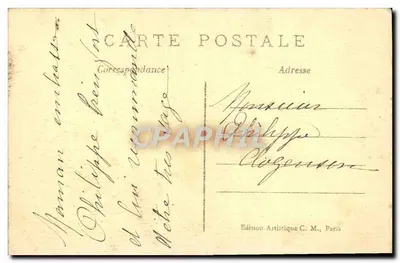 CARTE POSTALE
Correspondance
Adresse
Maman embrasse
Philippe bien fort
et lui recommande
d'être très sage
Monsieur
Philippe
CPARAMA
Edition Artistique C. M., Paris